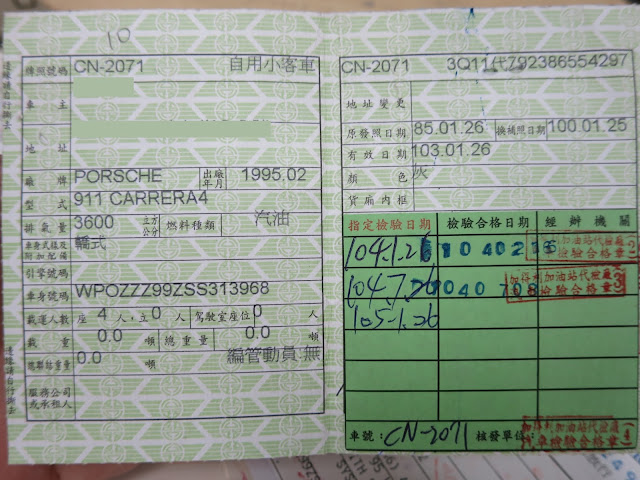 10
牌照號碼 CN-2071 自用小客車
車主
地址
廠牌 PORSCHE 出廠年月 1995.02
型式 911 CARRERA4
排氣量 3600 立方公分 燃料種類 汽油
車身式樣及附加配備 轎式
引擎號碼
車身號碼 WPOZZZ99ZSS313968
載運人數 座 4 人,立 0 人 駕駛室座位 0 人
載重 0.0 噸 總重量 0.0 噸
總聯結重量 0.0 噸 編管動員:無
服務公司或承租人
CN-2071 3Q11代792386554297
地址變更
原發照日期 85.01.26 換補照日期 100.01.25
有效日期 103.01.26
顏色 灰
貨廂內框
指定檢驗日期 檢驗合格日期 經辦機關
104.1.26 1040216 加得利加油站代檢廠 汽車檢驗合格章
104.7.26 1040708 加得利加油站代檢廠 汽車檢驗合格章
105.1.26
車號: CN-2071 核發單位: 加得利加油站代檢廠 汽車檢驗合格章